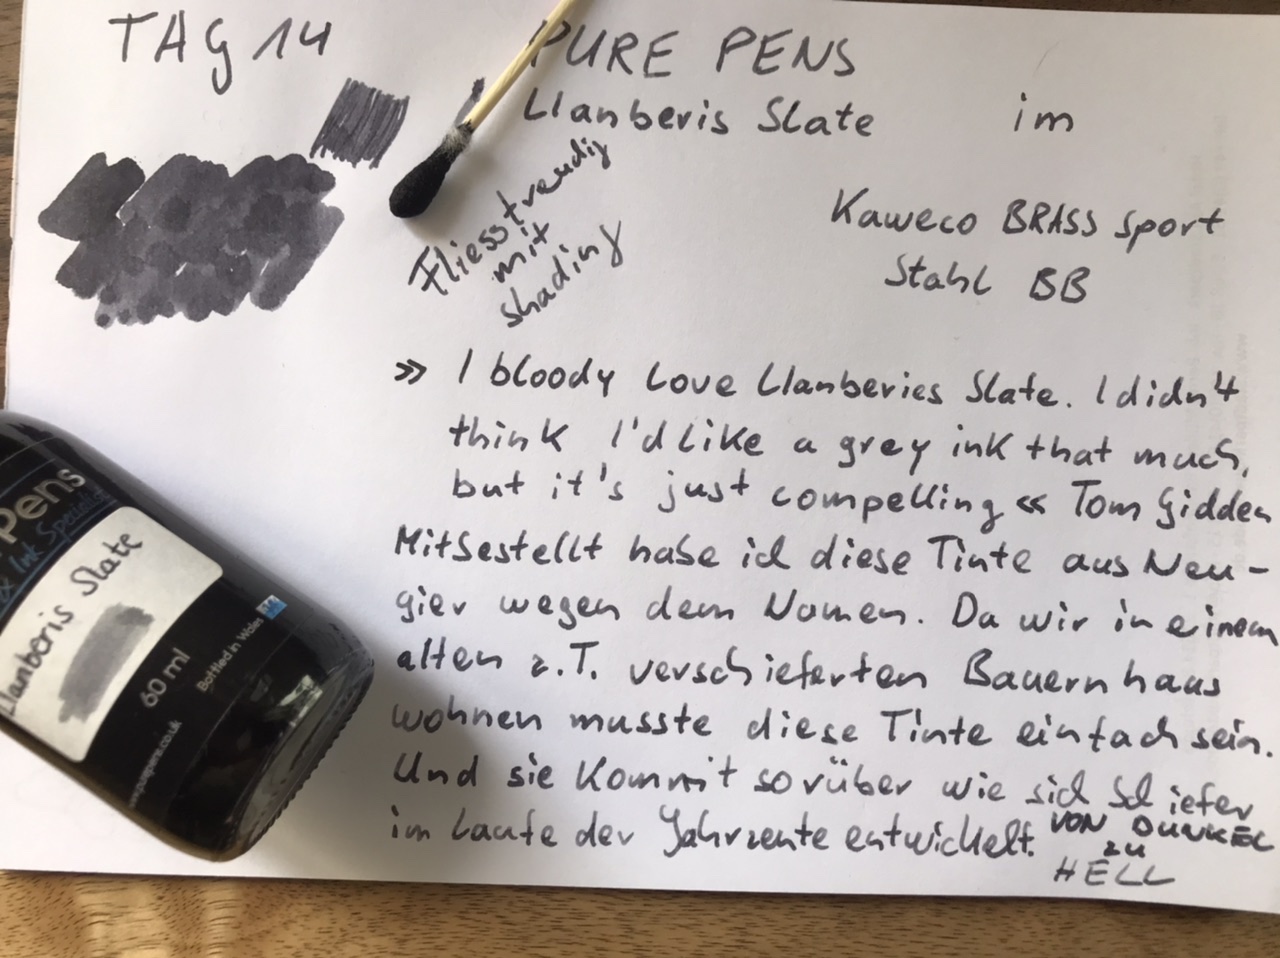 TAG 14
PURE PENS
Llanberis Slate im
Kaweco BRASS Sport
Stahl BB
Fliessfreudig
mit
shading
» I bloody love Llanberies Slate. I didn't
think I'd like a grey ink that much,
but it's just compelling « Tom Gidden
Mitbestellt habe ich diese Tinte aus Neu-
gier wegen dem Namen. Da wir in einem
alten z.T. verschieferten Bauernhaus
wohnen musste diese Tinte einfach sein.
Und sie kommt so rüber wie sich Schiefer
im Laufe der Jahrzente entwickelt. VON DUNKEL
zu
HELL
Pens
& Ink Specialists
Llanberis Slate
60 ml
Bottled in Wales